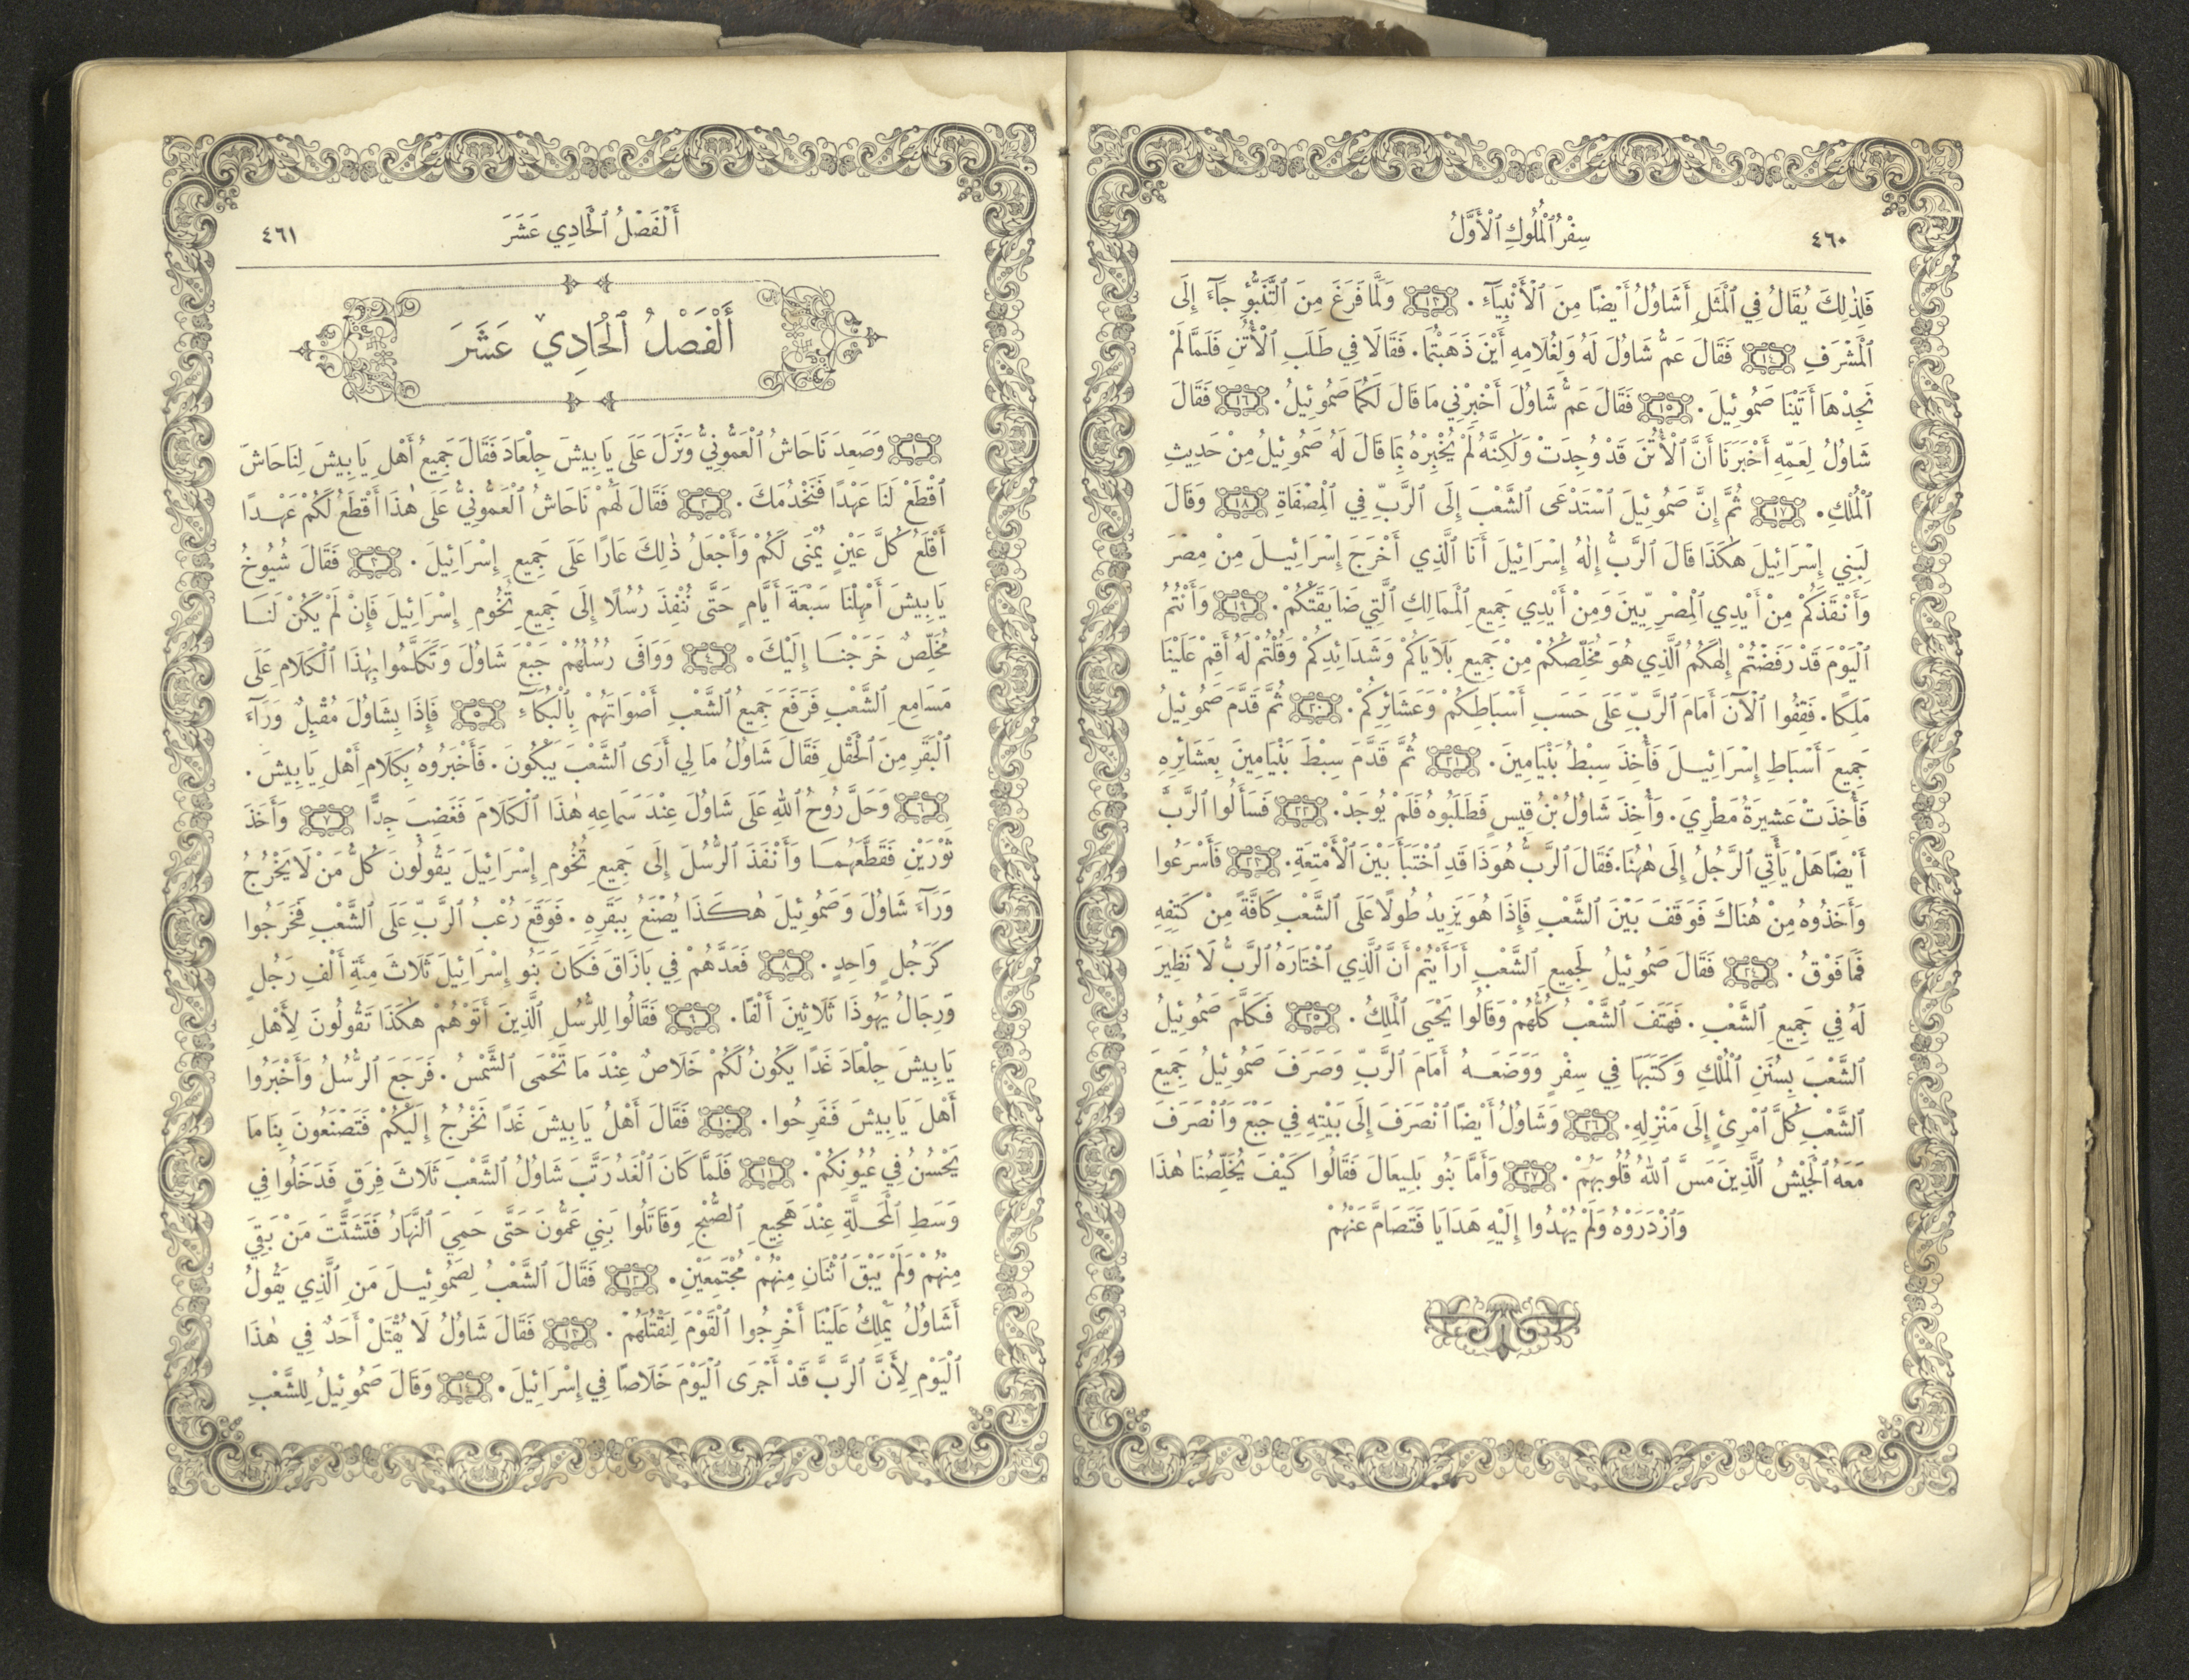 ٤٦٠
سِفْرُ ٱلْمُلُوكِ ٱلْأَوَّلُ
فَلِذٰلِكَ يُقَالُ فِي ٱلْمَثَلِ أَشَاوُلُ أَيْضًا مِنَ ٱلْأَنْبِيَآءِ. ١٣ وَلَمَّا فَرَغَ مِنَ ٱلتَّنَبُّؤِ جَآءَ إِلَى
ٱلْمَشْرَفِ ١٤ فَقَالَ عَمُّ شَاوُلَ لَهُ وَلِغُلَامِهِ أَيْنَ ذَهَبْتُمَا. فَقَالَا فِي طَلَبِ ٱلْأُتُنِ فَلَمَّا لَمْ
نَجِدْهَا أَتَيْنَا صَمُوئِيلَ. ١٥ فَقَالَ عَمُّ شَاوُلَ أَخْبِرْنِي مَا قَالَ لَكُمَا صَمُوئِيلُ. ١٦ فَقَالَ
شَاوُلُ لِعَمِّهِ أَخْبَرَنَا أَنَّ ٱلْأُتُنَ قَدْ وُجِدَتْ وَلٰكِنَّهُ لَمْ يُخْبِرْهُ بِمَا قَالَ لَهُ صَمُوئِيلُ مِنْ حَدِيثِ
ٱلْمُلْكِ. ١٧ ثُمَّ إِنَّ صَمُوئِيلَ ٱسْتَدْعَى ٱلشَّعْبَ إِلَى ٱلرَّبِّ فِي ٱلْمِصْفَاةِ ١٨ وَقَالَ
لِبَنِي إِسْرَائِيلَ هٰكَذَا قَالَ ٱلرَّبُّ إِلٰهُ إِسْرَائِيلَ أَنَا ٱلَّذِي أَخْرَجَ إِسْرَائِيلَ مِنْ مِصْرَ
وَأَنْقَذَكُمْ مِنْ أَيْدِي ٱلْمِصْرِيِّينَ وَمِنْ أَيْدِي جَمِيعِ ٱلْمَمَالِكِ ٱلَّتِي ضَايَقَتْكُمْ. ١٩ وَأَنْتُمُ
ٱلْيَوْمَ قَدْ رَفَضْتُمْ إِلٰهَكُمُ ٱلَّذِي هُوَ مُخَلِّصُكُمْ مِنْ جَمِيعِ بَلَايَاكُمْ وَشَدَائِدِكُمْ وَقُلْتُمْ لَهُ أَقِمْ عَلَيْنَا
مَلِكًا. فَقِفُوا ٱلْآنَ أَمَامَ ٱلرَّبِّ عَلَى حَسَبِ أَسْبَاطِكُمْ وَعَشَائِرِكُمْ. ٢٠ ثُمَّ قَدَّمَ صَمُوئِيلُ
جَمِيعَ أَسْبَاطِ إِسْرَائِيلَ فَأُخِذَ سِبْطُ بَنْيَامِينَ. ٢١ ثُمَّ قَدَّمَ سِبْطَ بَنْيَامِينَ بِعَشَائِرِهِ
فَأُخِذَتْ عَشِيرَةُ مَطْرِيَ. وَأُخِذَ شَاوُلُ بْنُ قِيسٍ فَطَلَبُوهُ فَلَمْ يُوجَدْ. ٢٢ فَسَأَلُوا ٱلرَّبَّ
أَيْضًا هَلْ يَأْتِي ٱلرَّجُلُ إِلَى هٰهُنَا. فَقَالَ ٱلرَّبُّ هُوَذَا قَدِ ٱخْتَبَأَ بَيْنَ ٱلْأَمْتِعَةِ. ٢٣ فَأَسْرَعُوا
وَأَخَذُوهُ مِنْ هُنَاكَ فَوَقَفَ بَيْنَ ٱلشَّعْبِ فَإِذَا هُوَ يَزِيدُ طُولًا عَلَى ٱلشَّعْبِ كَافَّةً مِنْ كَتِفِهِ
فَمَا فَوْقُ. ٢٤ فَقَالَ صَمُوئِيلُ لِجَمِيعِ ٱلشَّعْبِ أَرَأَيْتُمْ أَنَّ ٱلَّذِي ٱخْتَارَهُ ٱلرَّبُّ لَا نَظِيرَ
لَهُ فِي جَمِيعِ ٱلشَّعْبِ. فَهَتَفَ ٱلشَّعْبُ كُلُّهُمْ وَقَالُوا يَحْيَى ٱلْمَلِكُ. ٢٥ فَكَلَّمَ صَمُوئِيلُ
ٱلشَّعْبَ بِسُنَنِ ٱلْمُلْكِ وَكَتَبَهَا فِي سِفْرٍ وَوَضَعَهُ أَمَامَ ٱلرَّبِّ وَصَرَفَ صَمُوئِيلُ جَمِيعَ
ٱلشَّعْبِ كُلَّ ٱمْرِئٍ إِلَى مَنْزِلِهِ. ٢٦ وَشَاوُلُ أَيْضًا ٱنْصَرَفَ إِلَى بَيْتِهِ فِي جَبْعَ وَٱنْصَرَفَ
مَعَهُ ٱلْجَيْشُ ٱلَّذِينَ مَسَّ ٱللهُ قُلُوبَهُمْ. ٢٧ وَأَمَّا بَنُو بَلِيعَالَ فَقَالُوا كَيْفَ يُخَلِّصُنَا هٰذَا
وَٱزْدَرَوْهُ وَلَمْ يُهْدُوا إِلَيْهِ هَدَايَا فَتَصَامَّ عَنْهُمْ
أَلْفَصْلُ ٱلْحَادِي عَشَرَ
٤٦١
أَلْفَصْلُ ٱلْحَادِي عَشَرَ
١ وَصَعِدَ نَاحَاشُ ٱلْعَمُّونِيُّ وَنَزَلَ عَلَى يَابِيشَ جِلْعَادَ فَقَالَ جَمِيعُ أَهْلِ يَابِيشَ لِنَاحَاشَ
ٱقْطَعْ لَنَا عَهْدًا فَنَخْدُمَكَ. ٢ فَقَالَ لَهُمْ نَاحَاشُ ٱلْعَمُّونِيُّ عَلَى هٰذَا أَقْطَعُ لَكُمْ عَهْدًا
أَقْلَعُ كُلَّ عَيْنٍ يُمْنَى لَكُمْ وَأَجْعَلُ ذٰلِكَ عَارًا عَلَى جَمِيعِ إِسْرَائِيلَ. ٣ فَقَالَ شُيُوخُ
يَابِيشَ أَمْهِلْنَا سَبْعَةَ أَيَّامٍ حَتَّى نُنْفِذَ رُسُلًا إِلَى جَمِيعِ تُخُومِ إِسْرَائِيلَ فَإِنْ لَمْ يَكُنْ لَنَا
مُخَلِّصٌ خَرَجْنَا إِلَيْكَ. ٤ وَوَافَى رُسُلُهُمْ جَبْعَ شَاوُلَ وَتَكَلَّمُوا بِهٰذَا ٱلْكَلَامِ عَلَى
مَسَامِعِ ٱلشَّعْبِ فَرَفَعَ جَمِيعُ ٱلشَّعْبِ أَصْوَاتَهُمْ بِٱلْبُكَآءِ ٥ فَإِذَا بِشَاوُلَ مُقْبِلٌ وَرَآءَ
ٱلْبَقَرِ مِنَ ٱلْحَقْلِ فَقَالَ شَاوُلُ مَا لِي أَرَى ٱلشَّعْبَ يَبْكُونَ. فَأَخْبَرُوهُ بِكَلَامِ أَهْلِ يَابِيشَ.
٦ وَحَلَّ رُوحُ ٱللهِ عَلَى شَاوُلَ عِنْدَ سَمَاعِهِ هٰذَا ٱلْكَلَامَ فَغَضِبَ جِدًّا ٧ وَأَخَذَ
ثَوْرَيْنِ فَقَطَّعَهُمَا وَأَنْفَذَ ٱلرُّسُلَ إِلَى جَمِيعِ تُخُومِ إِسْرَائِيلَ يَقُولُونَ كُلُّ مَنْ لَا يَخْرُجُ
وَرَآءَ شَاوُلَ وَصَمُوئِيلَ هٰكَذَا يُصْنَعُ بِبَقَرِهِ. فَوَقَعَ رُعْبُ ٱلرَّبِّ عَلَى ٱلشَّعْبِ فَخَرَجُوا
كَرَجُلٍ وَاحِدٍ. ٨ فَعَدَّهُمْ فِي بَازَاقَ فَكَانَ بَنُو إِسْرَائِيلَ ثَلَاثَ مِئَةِ أَلْفِ رَجُلٍ
وَرِجَالُ يَهُوذَا ثَلَاثِينَ أَلْفًا. ٩ فَقَالُوا لِلرُّسُلِ ٱلَّذِينَ أَتَوْهُمْ هٰكَذَا تَقُولُونَ لِأَهْلِ
يَابِيشَ جِلْعَادَ غَدًا يَكُونُ لَكُمْ خَلَاصٌ عِنْدَ مَا تَحْمَى ٱلشَّمْسُ. فَرَجَعَ ٱلرُّسُلُ وَأَخْبَرُوا
أَهْلَ يَابِيشَ فَفَرِحُوا. ١٠ فَقَالَ أَهْلُ يَابِيشَ غَدًا نَخْرُجُ إِلَيْكُمْ فَتَصْنَعُونَ بِنَا مَا
يَحْسُنُ فِي عُيُونِكُمْ. ١١ فَلَمَّا كَانَ ٱلْغَدُ رَتَّبَ شَاوُلُ ٱلشَّعْبَ ثَلَاثَ فِرَقٍ فَدَخَلُوا فِي
وَسَطِ ٱلْمَحَلَّةِ عِنْدَ هَجِيعِ ٱلصُّبْحِ وَقَاتَلُوا بَنِي عَمُّونَ حَتَّى حَمِيَ ٱلنَّهَارُ فَتَشَتَّتَ مَنْ بَقِيَ
مِنْهُمْ وَلَمْ يَبْقَ ٱثْنَانِ مِنْهُمْ مُجْتَمِعَيْنِ. ١٢ فَقَالَ ٱلشَّعْبُ لِصَمُوئِيلَ مَنِ ٱلَّذِي يَقُولُ
أَشَاوُلُ يَمْلِكُ عَلَيْنَا أَخْرِجُوا ٱلْقَوْمَ لِنَقْتُلَهُمْ. ١٣ فَقَالَ شَاوُلُ لَا يُقْتَلْ أَحَدٌ فِي هٰذَا
ٱلْيَوْمِ لِأَنَّ ٱلرَّبَّ قَدْ أَجْرَى ٱلْيَوْمَ خَلَاصًا فِي إِسْرَائِيلَ. ١٤ وَقَالَ صَمُوئِيلُ لِلشَّعْبِ